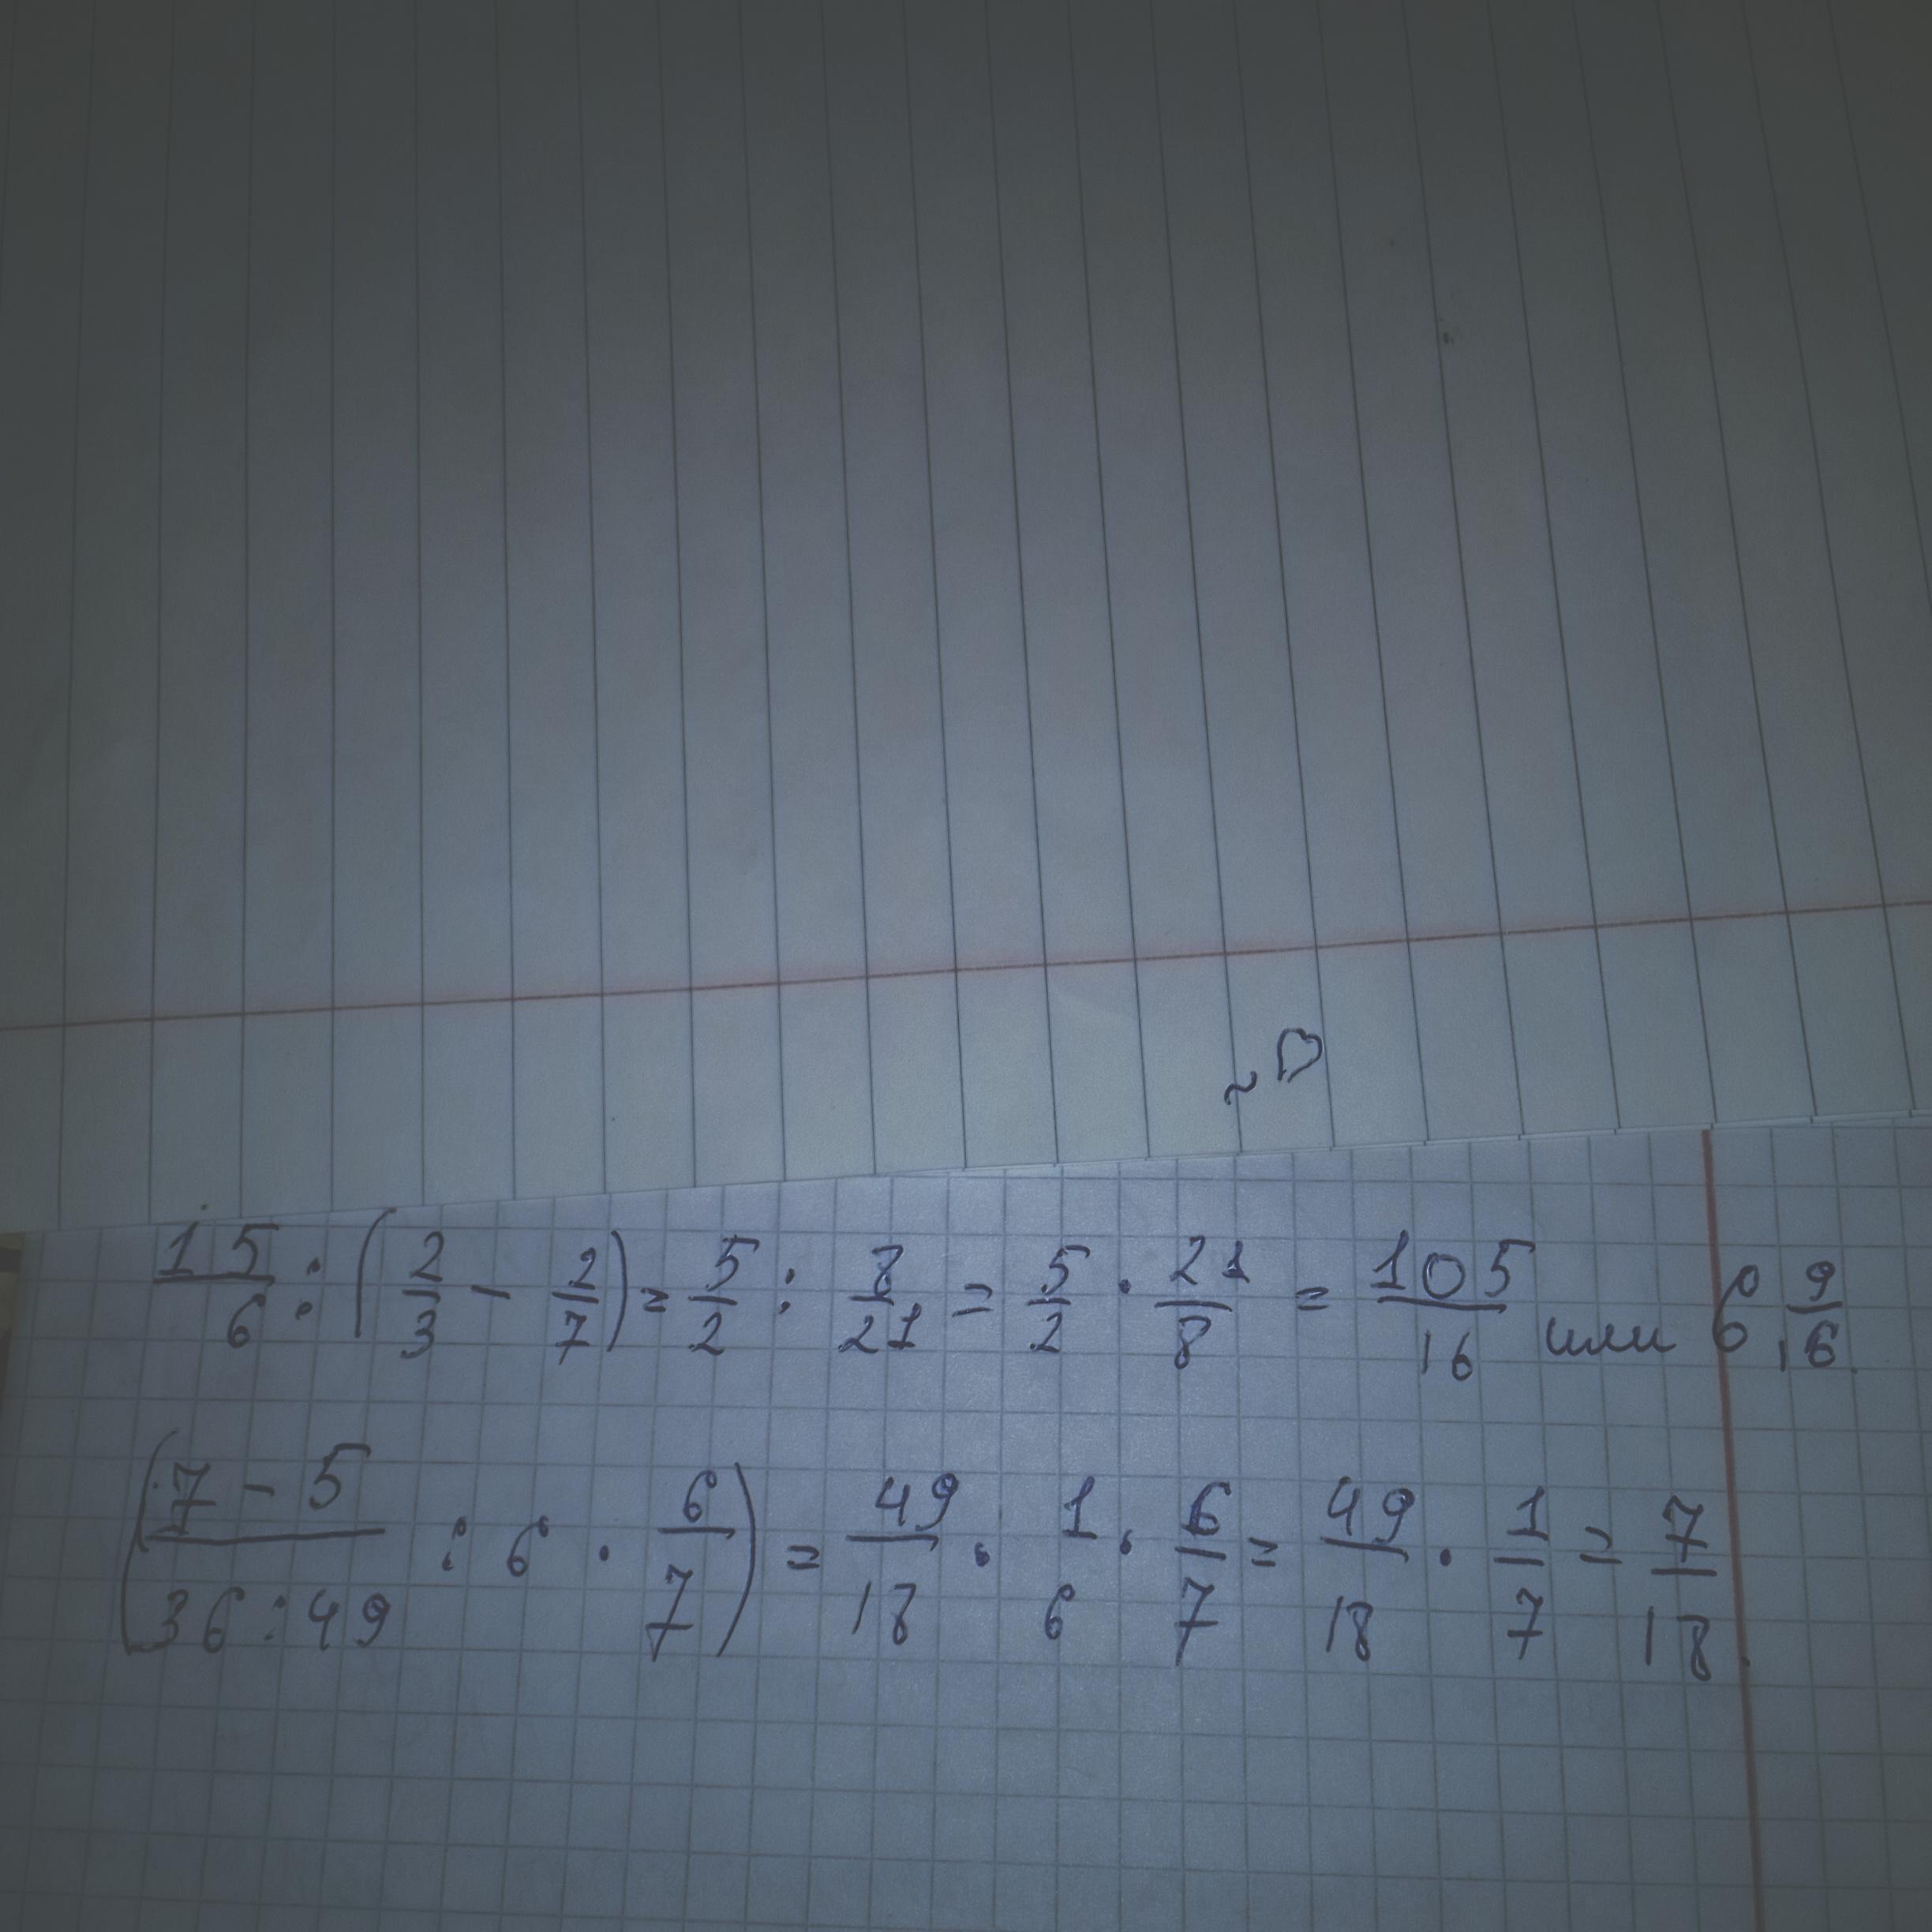 ~
15/6 : (2/3 - 2/7) = 5/2 : 8/21 = 5/2 · 21/8 = 105/16 или 6 9/16
(7-5/36:49 : 6 · 6/7) = 49/18 · 1/6 · 6/7 = 49/18 · 1/7 = 7/18